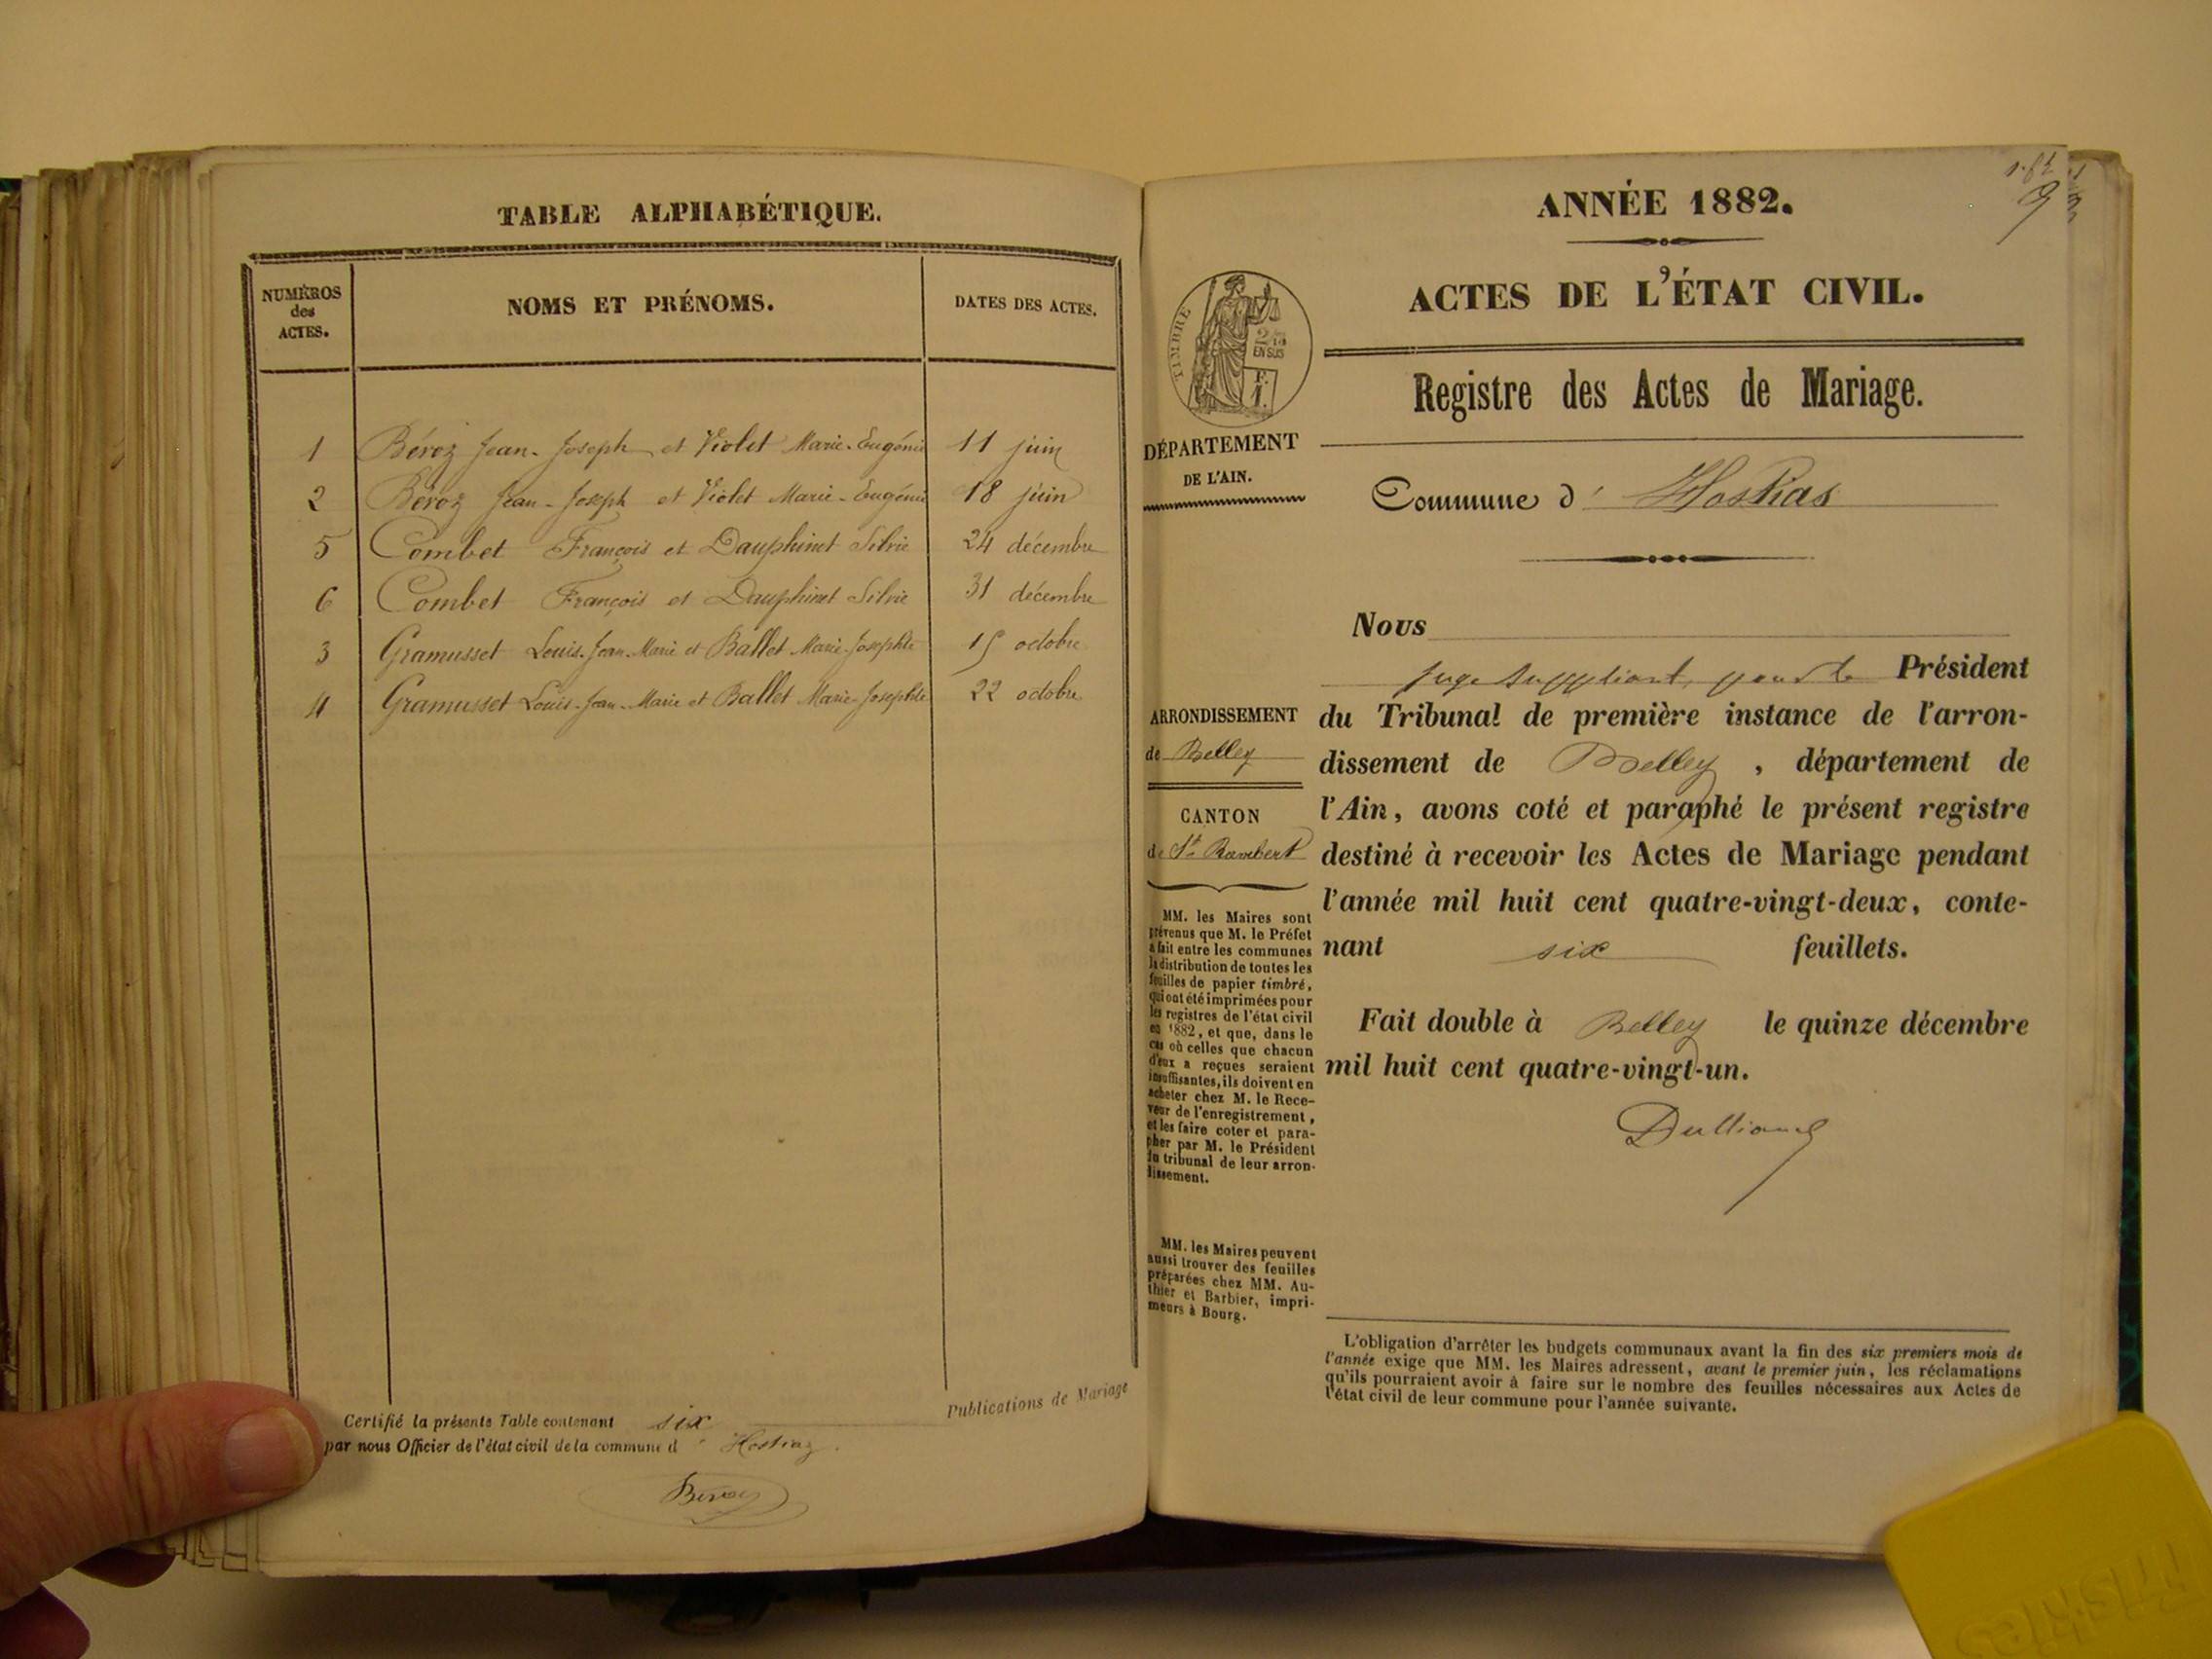 TABLE ALPHABÉTIQUE.
NUMÉROS
des
ACTES.
NOMS ET PRÉNOMS.
DATES DES ACTES.
1 Béroz Jean-Joseph et Violet Marie-Eugénie 11 juin
2 Béroz Jean-Joseph et Violet Marie-Eugénie 18 juin
5 Combet François et Dauphinet Silvie 24 décembre
6 Combet François et Dauphinet Silvie 31 décembre
3 Gramusset Louis-Jean-Marie et Ballet Marie-Josephte 15 octobre
4 Gramusset Louis-Jean-Marie et Ballet Marie-Josephte 22 octobre
Publications de Mariage
Certifié la présente Table contenant six
par nous Officier de l'état civil de la commune d' Hostiaz.
Béroz
9
ANNÉE 1882.
ACTES DE L'ÉTAT CIVIL.
Registre des Actes de Mariage.
TIMBRE
2/10
EN SUS
F.
1.
DÉPARTEMENT
DE L'AIN.
Commune d' Hostias
Nous
juge suppléant, pour le Président
du Tribunal de première instance de l'arron-
dissement de Belley, département de
l'Ain, avons coté et paraphé le présent registre
destiné à recevoir les Actes de Mariage pendant
l'année mil huit cent quatre-vingt-deux, conte-
nant six feuillets.
Fait double à Belley le quinze décembre
mil huit cent quatre-vingt-un.
ARRONDISSEMENT
de Belley
CANTON
de St Rambert
MM. les Maires sont
prévenus que M. le Préfet
a fait entre les communes
la distribution de toutes les
feuilles de papier timbré,
qui ont été imprimées pour
les registres de l'état civil
en 1882, et que, dans le
cas où celles que chacun
d'eux a reçues seraient
insuffisantes, ils doivent en
acheter chez M. le Rece-
veur de l'enregistrement,
et les faire coter et para-
pher par M. le Président
du tribunal de leur arron-
dissement.
MM. les Maires peuvent
aussi trouver des feuilles
préparées chez MM. Au-
thier et Barbier, impri-
meurs à Bourg.
L'obligation d'arrêter les budgets communaux avant la fin des six premiers mois de
l'année exige que MM. les Maires adressent, avant le premier juin, les réclamations
qu'ils pourraient avoir à faire sur le nombre des feuilles nécessaires aux Actes de
l'état civil de leur commune pour l'année suivante.